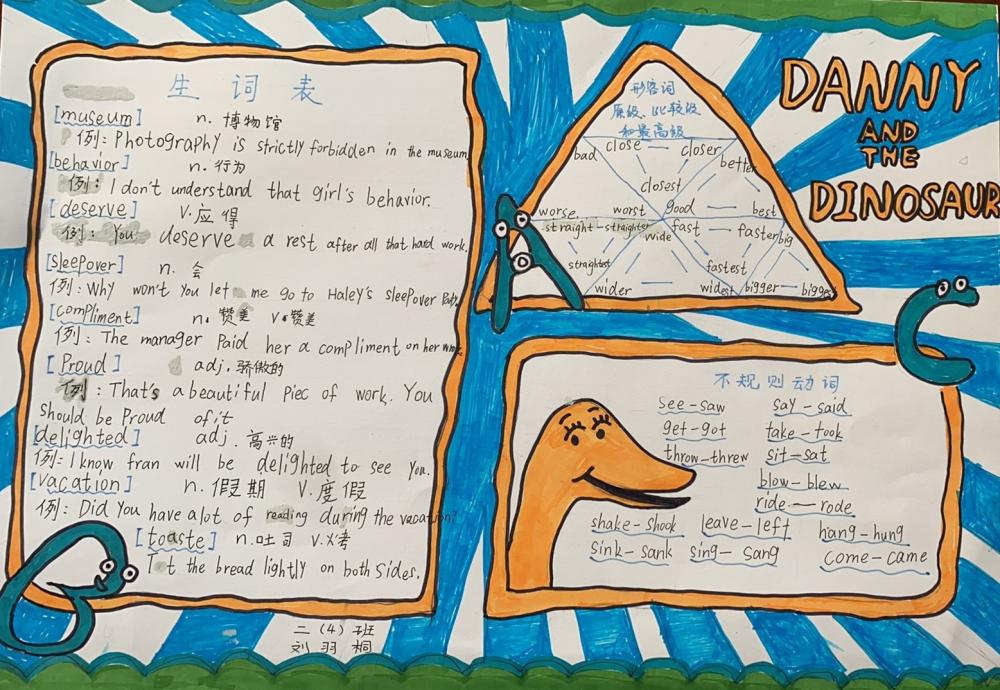 生 词 表
[museum] n. 博物馆
例: Photography is strictly forbidden in the museum
[behavior] n. 行为
例: I don't understand that girl's behavior.
[deserve] v. 应得
例: You deserve a rest after all that hard work.
[sleepover] n. 会
例: Why won't you let me go to Haley's sleepover Party
[compliment] n. 赞美 v. 赞美
例: The manager Paid her a compliment on her work
[Proud] adj. 骄傲的
例: That's a beautiful Piec of work. You
should be Proud of it
[delighted] adj. 高兴的
例: I know fran will be delighted to see You.
[vacation] n. 假期 V. 度假
例: Did You have alot of reading during the vacation?
[toaste] n. 吐司 v. 烤
the bread lightly on both sides.
二 (4) 班
刘 羽 桐
形容词
原级、比较级
和最高级
bad close closer better
closest
worse worst good best
straight - straighter wide fast faster big
straightest fastest
wider widest bigger biggest
DANNY
AND
THE
DINOSAUR
不规则动词
see-saw say-said
get-got take-took
throw-threw sit-sat
blow-blew
ride-rode
shake-shook leave-left hang-hung
sink-sank sing-sang come-came